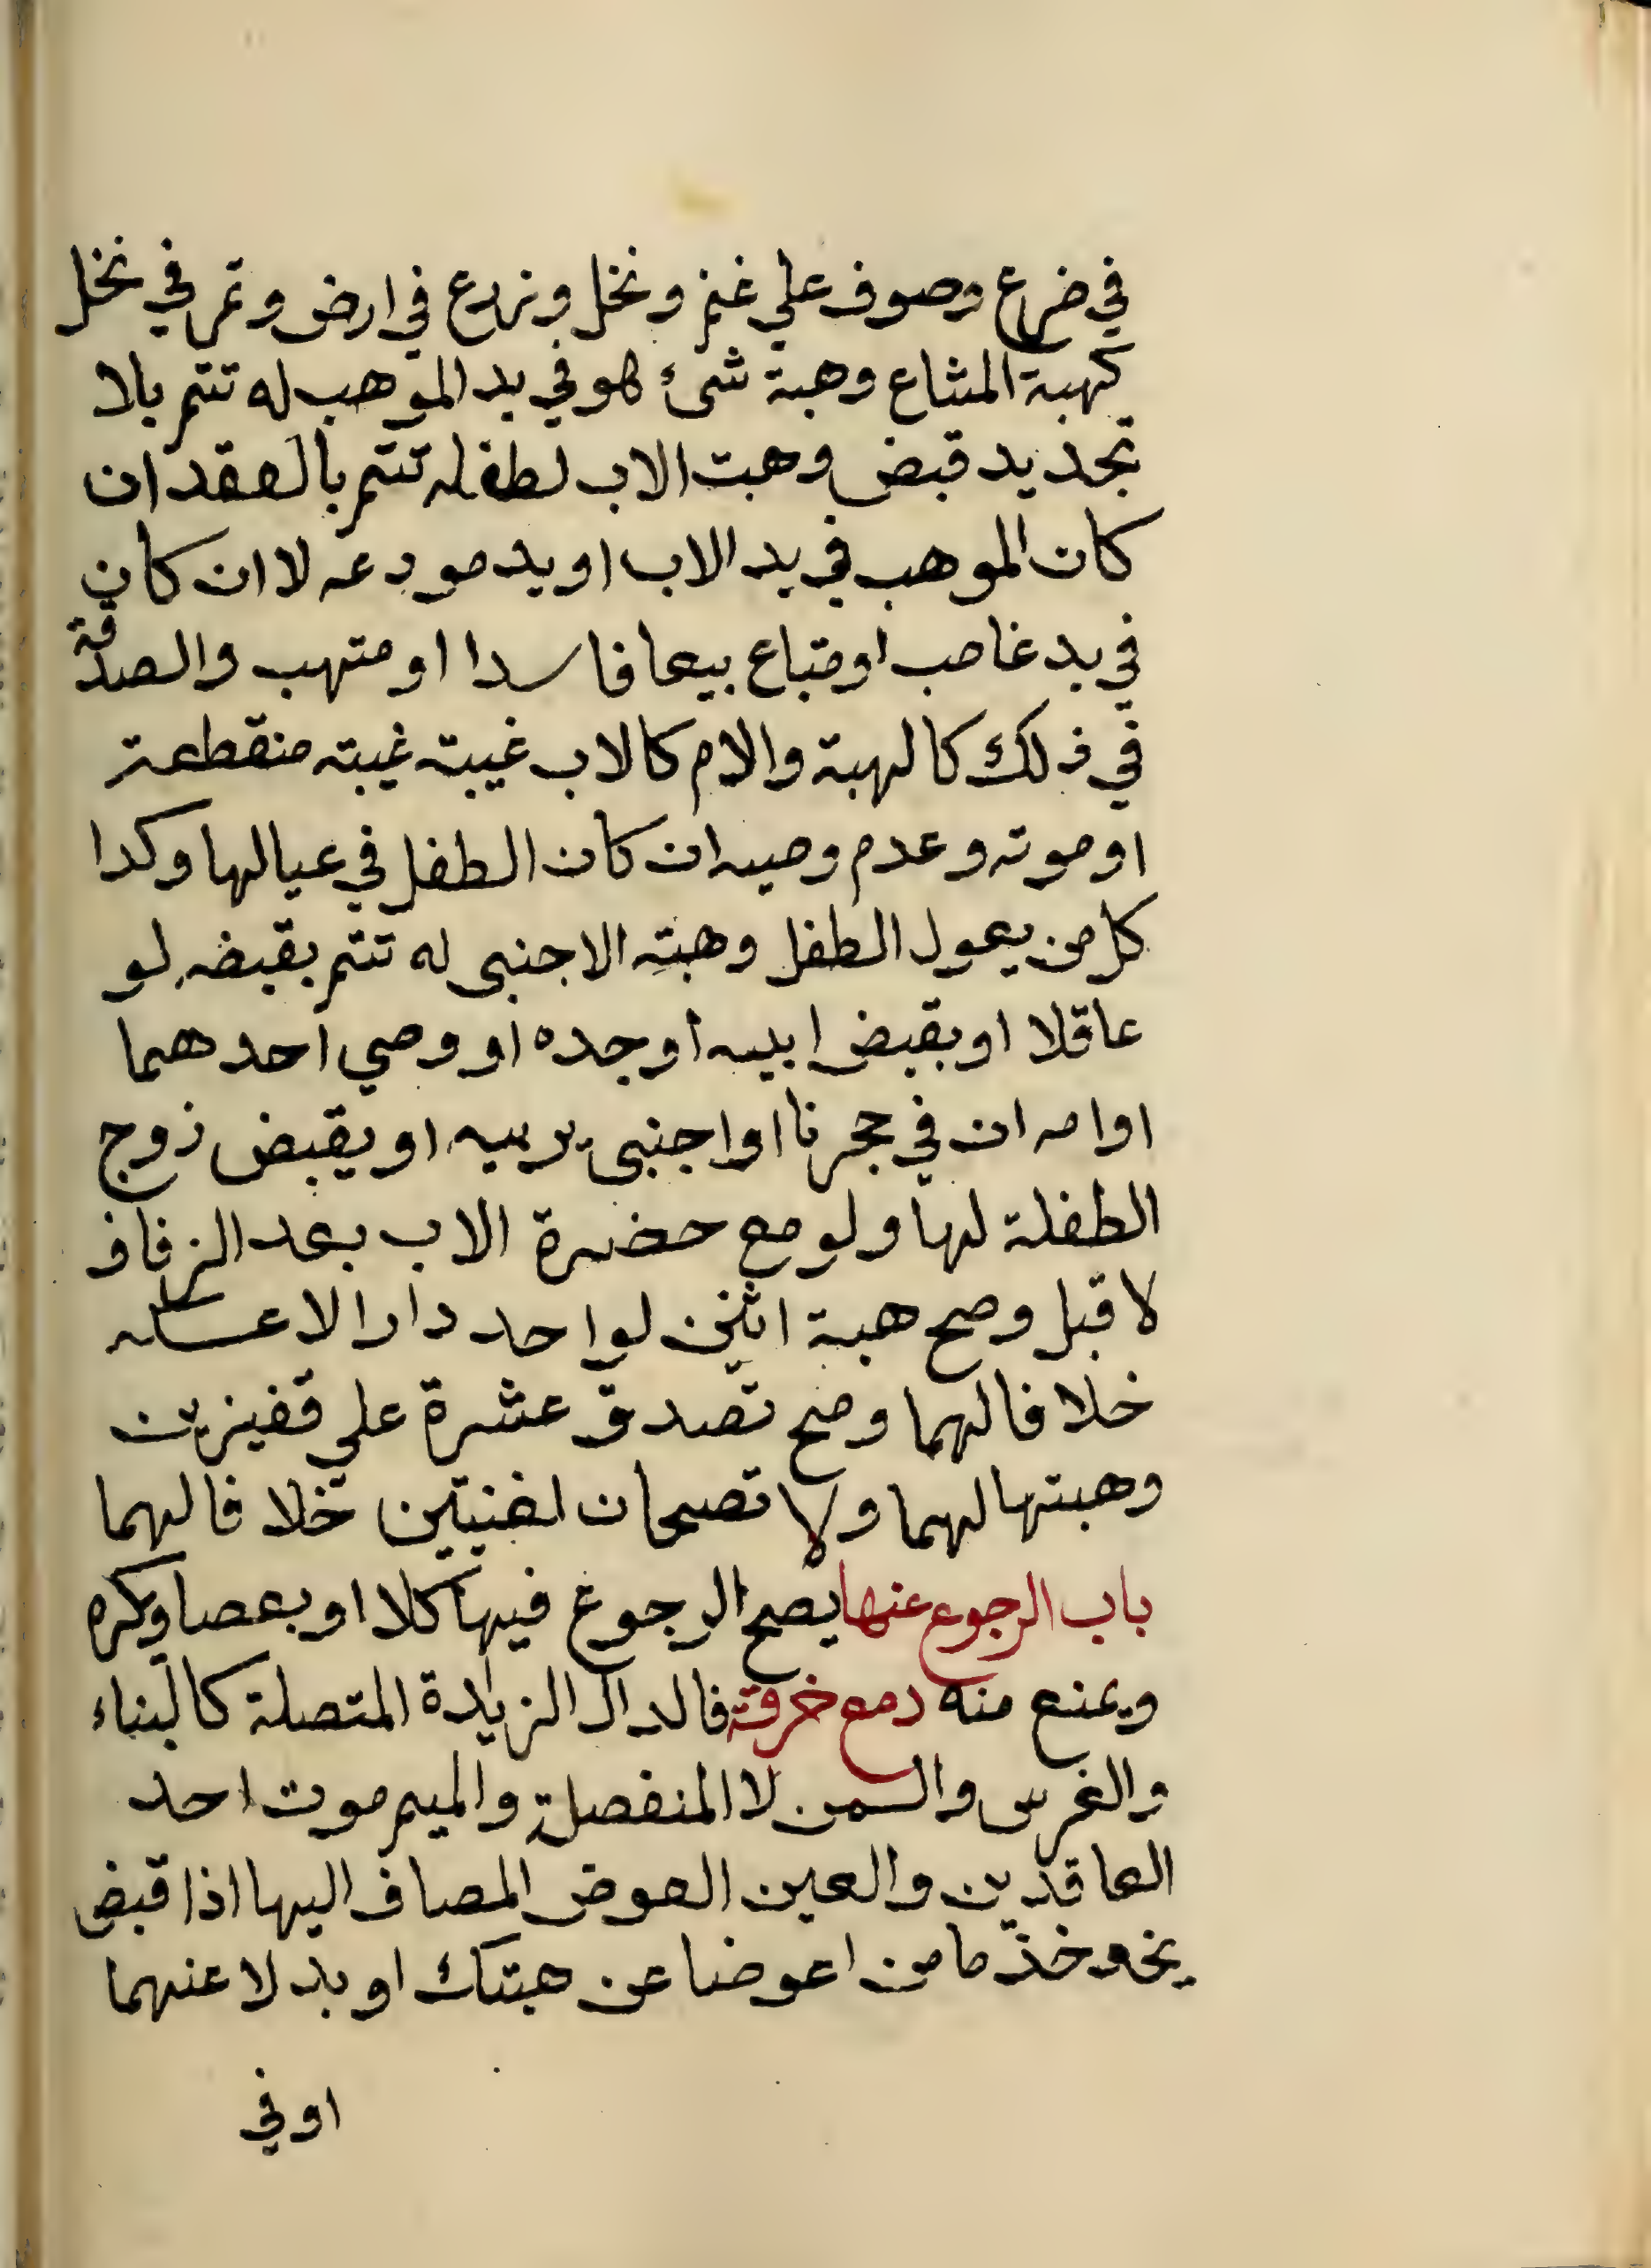 في ضرع وصوف علي غنم ونخل وزرع في ارض وتمر في نخل
كهبة المشاع وهبة شئ هو في يد الموهب له تتم بلا
تجديد قبض وهبت الاب لطفله تتم بالعقد ان
كان الموهب في يد الاب او يد مودعه لا ان كان
في يد غاصب او مبتاع بيعا فاسدا او متهب والصدقة
في ذلك كالهبة والام كالاب غيبته غيبته منقطعة
او موته وعدم وصيه ان كان الطفل في عيالها وكدا
كل من يعول الطفل وهبته الاجنبى له تتم بقبضه لو
عاقلا او بقبض ابيه او جده او وصي احدهما
او امه ان في حجرنا او اجنبى يربيه او يقبض زوج
الطفلة لها ولو مع حضرة الاب بعد الزفاف
لا قبل وصح هبة اثنين لواحد دارا لا عكسه
خلافا لهما وصح تصدق عشرة علي قفيزين
وهبتها لهما ولا تصحان لغنيين خلافا لهما
باب الرجوع عنها يصح الرجوع فيها كلا او بعصا ويكره
ويمنع منه دمع خرقته فالدال الزيادة المتصلة كالبناء
والغرس والسمن لا المنفصلة والميم موت احد
العاقدين والعين العوض المصاف اليها اذا قبض
نحو خذ ما من اعوضا عن هبتك او بدلا عنهما
اوفي